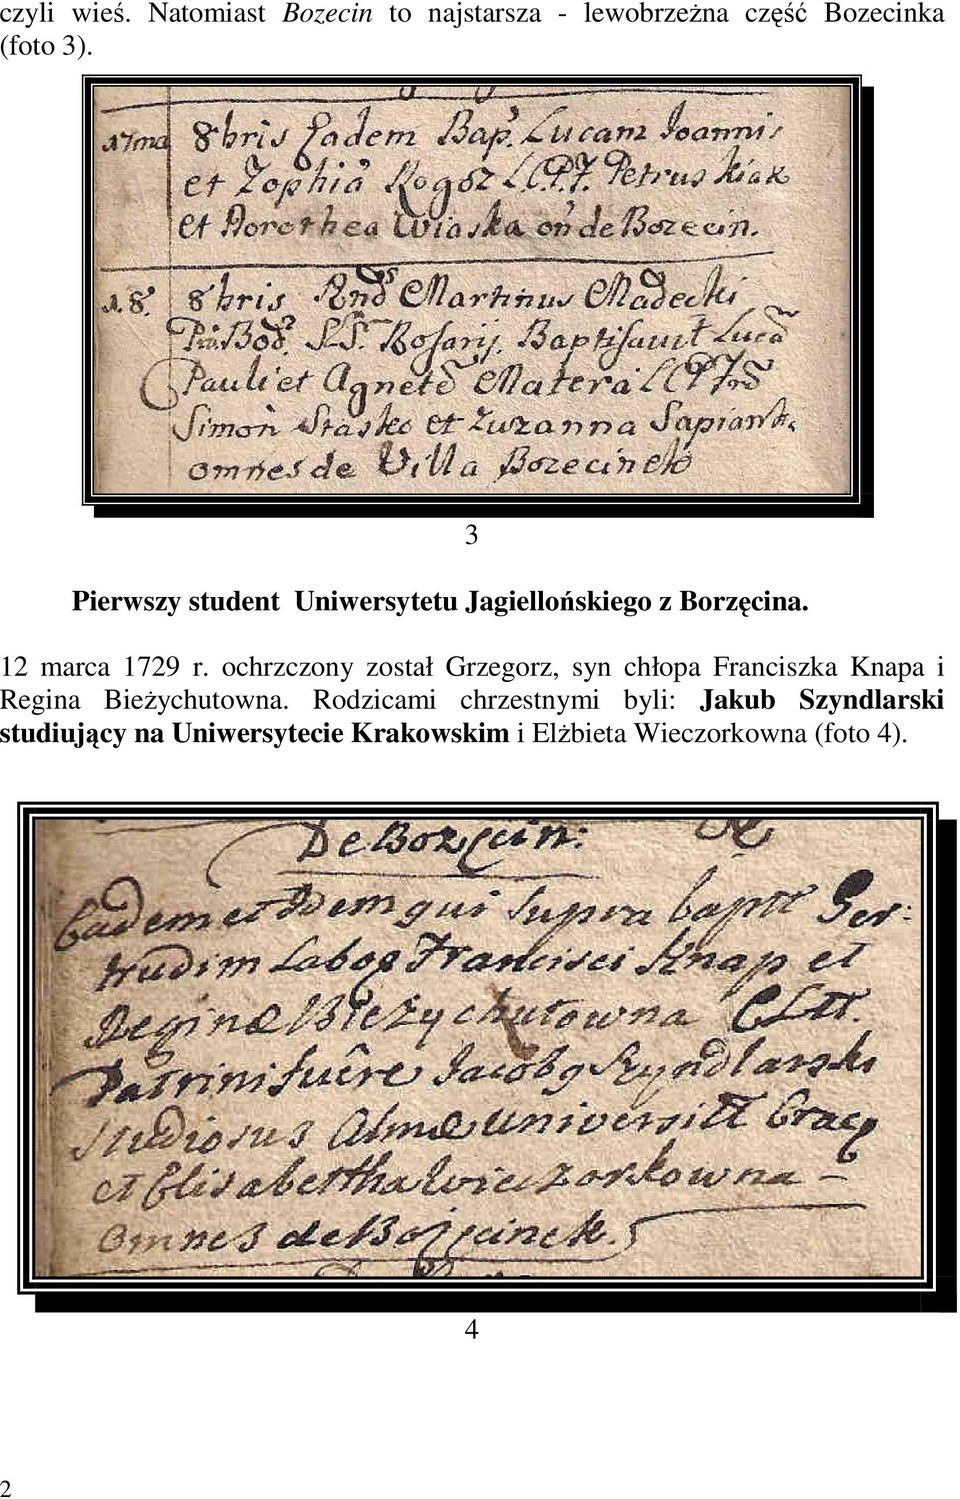 czyli wieś. Natomiast Bozecin to najstarsza - lewobrzeżna część Bozecinka
(foto 3).
17ma 8bris Eadem Bap. Lucam Joannis
et Zophia Kogosz LCPT. Petrus Kiak
et Dorothea Wiaska oñ de Bozecin.
18. 8bris And Martinus Madecki
Bod. SS. Rosarij. Baptisauit Luca
Pauli et Agnete Matera LCPT
Simon Stasko et Zuzanna Sapiansk
omnes de Villa Bozecinek
3
Pierwszy student Uniwersytetu Jagiellońskiego z Borzęcina.
12 marca 1729 r. ochrzczony został Grzegorz, syn chłopa Franciszka Knapa i
Regina Bieżychutowna. Rodzicami chrzestnymi byli: Jakub Szyndlarski
studiujący na Uniwersytecie Krakowskim i Elżbieta Wieczorkowna (foto 4).
De Bozęcin:
Eadem et Idem qui supra bapt Ger:
trudim Labog Francisci Knap et
Reginæ Bieżychutowna CLtt.
Patrini fuêre Jacobg Szyndlarski
studiosus Almæ Universitt Crac
et Elisabettha Wieczorkowna -
Omnes de Bozęcinek.
4
2